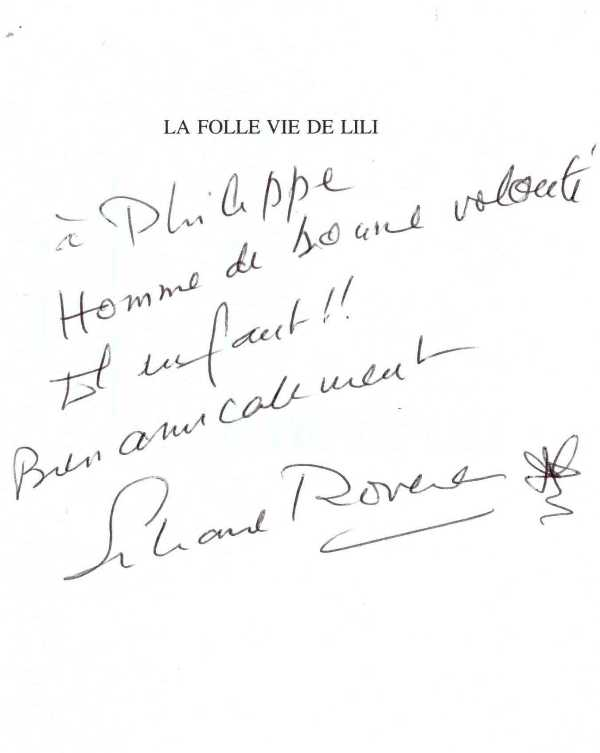 LA FOLLE VIE DE LILI
à Philippe
Homme de bonne volonté
Il en faut!!
Bien amicalement
Liliane Rovere